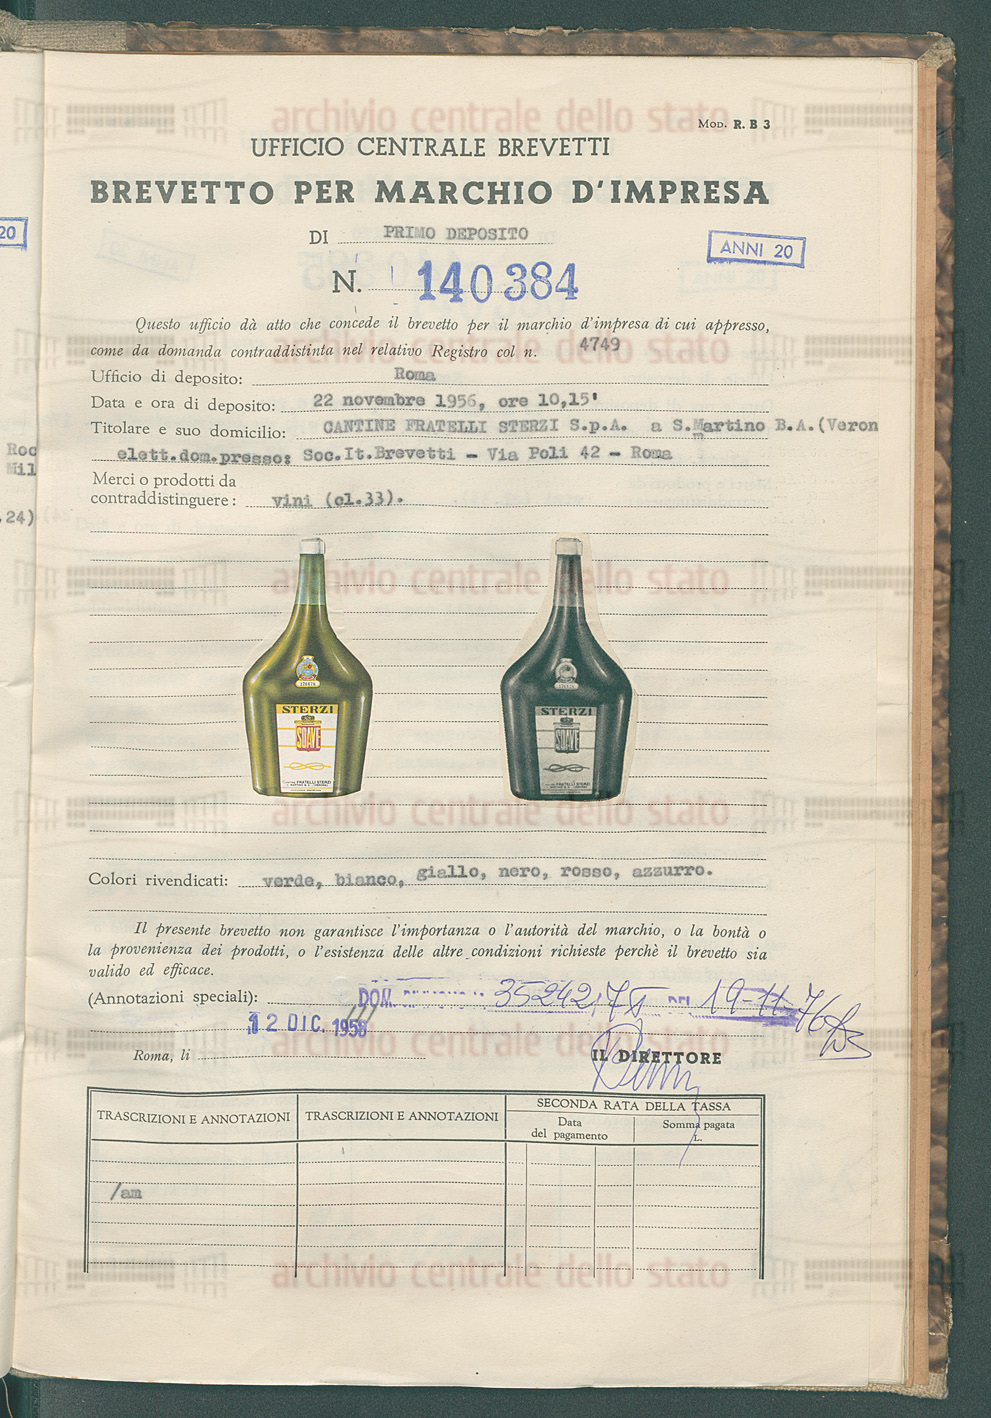 Mod. R. B 3
UFFICIO CENTRALE BREVETTI
BREVETTO PER MARCHIO D'IMPRESA
DI PRIMO DEPOSITO
20
ANNI 20
N. 140384
Questo ufficio dà atto che concede il brevetto per il marchio d'impresa di cui appresso,
come da domanda contraddistinta nel relativo Registro col n. 4749
Ufficio di deposito: Roma
Data e ora di deposito: 22 novembre 1956, ore 10,15'
Titolare e suo domicilio: CANTINE FRATELLI STERZI S.p.A. a S.Martino B.A.(Veron
elett.dom.presso: Soc.It.Brevetti - Via Poli 42 - Roma
Roc
Mil
Merci o prodotti da
contraddistinguere: vini (cl.33).
.24)
STERZI
SOAVE
FRATELLI STERZI
STERZI
SOAVE
FRATELLI STERZI
Colori rivendicati: verde, bianco, giallo, nero, rosso, azzurro.
Il presente brevetto non garantisce l'importanza o l'autorità del marchio, o la bontà o
la provenienza dei prodotti, o l'esistenza delle altre condizioni richieste perchè il brevetto sia
valido ed efficace.
(Annotazioni speciali): DOM. 35242 DEL 19-11-76
12 DIC. 1958
Roma, li
IL DIRETTORE
TRASCRIZIONI E ANNOTAZIONI
TRASCRIZIONI E ANNOTAZIONI
SECONDA RATA DELLA TASSA
Data
del pagamento
Somma pagata
L.
/am
archivio centrale dello stato
archivio centrale dello stato
archivio centrale dello stato
archivio centrale dello stato
archivio centrale dello stato
archivio centrale dello stato